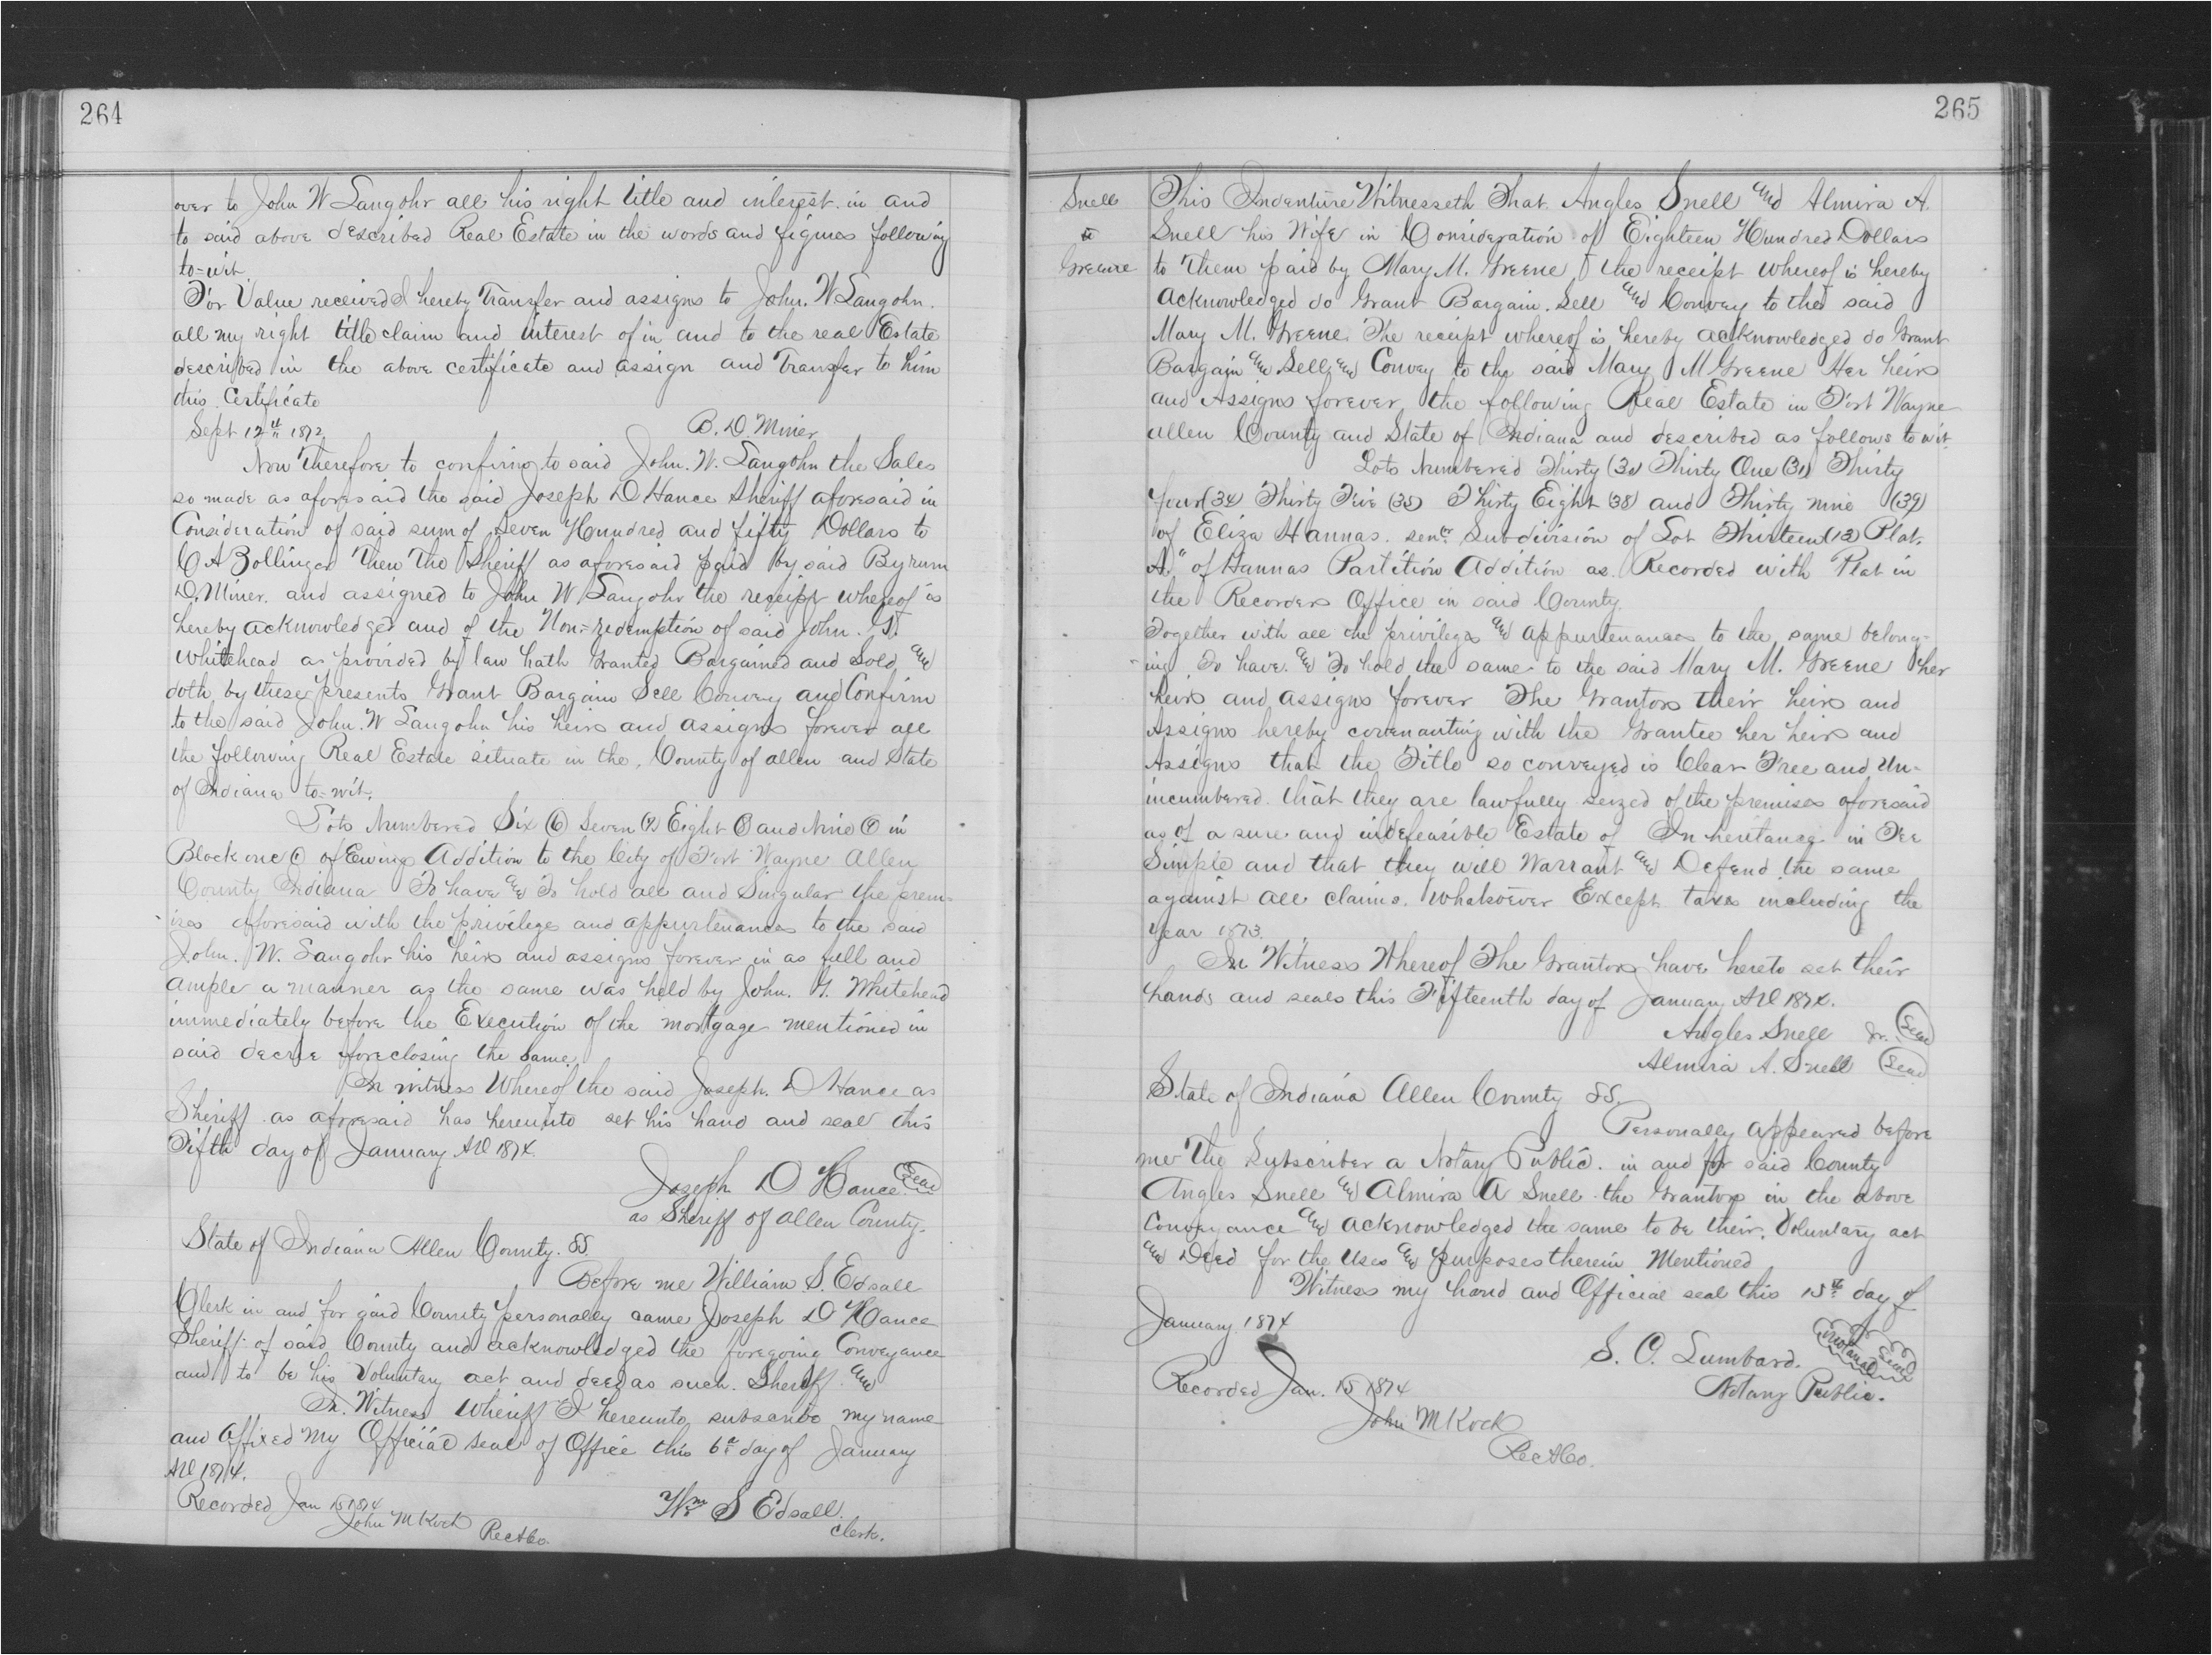 264
over to John W Langohr all his right title and interest in and
to said above described Real Estate in the words and figures following
to-wit
For Value received I hereby Transfer and assigns to John. W Langohr.
all my right title claim and interest of in and to the real Estate
described in the above certificate and assign and Transfer to him
this Certificate
Sept 12th 1872 B. D. Miner
Now Therefore to confirm to said John. W. Langohr the Sales
so made as aforesaid the said Joseph D Hance Sheriff aforesaid in
Consideration of said sum of Seven Hundred and fifty Dollars to
C A Zollinger Then The Sheriff as aforesaid paid by said Byrum
D. Miner. and assigned to John W Langohr the receipt whereof is
hereby acknowledged and of the Non-redemption of said John. G.
Whitehead as provided by law hath Granted Bargained and Sold and
doth by these presents Grant Bargain Sell Convey and Confirm
to the said John. W Langohr his heirs and assigns forever all
the following Real Estate situate in the County of allen and State
of Indiana to-wit.
Lots Numbered Six (6) Seven (7) Eight (8) and Nine (9) in
Block one (1) of Ewings Addition to the City of Fort Wayne Allen
County Indiana To have and To hold all and Singular the prem-
ises aforesaid with the privileges and appurtenances to the said
John. W. Langohr his heirs and assigns forever in as full and
ample a manner as the same was held by John. G. Whitehead
immediately before the Execution of the mortgage mentioned in
said decree foreclosing the same.
In witness Whereof the said Joseph. D Hance as
Sheriff as aforesaid has hereunto set his hand and seal this
Fifth day of January AD 1874.
Joseph D Hance Seal
as Sheriff of Allen County.
State of Indiana Allen County. SS.
Before me William S. Edsall
Clerk in and for said County personally came Joseph D Hance
Sheriff of said County and acknowledged the foregoing Conveyance
and to be his Voluntary act and deed as such. Sheriff and
In. Witness Whereof I hereunto subscribe my name
and Affixed my Official seal of Office this 6th day of January
AD 1874.
Recorded Jan 15 1874 Wm S Edsall.
John M Koch RecACo. Clerk.
265
Snell
to
Greene
This Indenture Witnesseth That Angles Snell and Almira A.
Snell his Wife in Consideration of Eighteen Hundred Dollars
to Them paid by Mary M. Greene, the receipt whereof is hereby
acknowledged do Grant Bargain. Sell and Convey to the said
Mary M. Greene. The receipt whereof is hereby acknowledged do Grant
Bargain and Sell and Convey to the said Mary M Greene Her heirs
and Assigns forever the following Real Estate in Fort Wayne
allen County and State of Indiana and described as follows to wit
Lots Numbered Thirty (30) Thirty One (31) Thirty
four (34) Thirty Five (35) Thirty Eight (38) and Thirty nine (39)
of Eliza Hannas. senr. Subdivision of Lot Thirteen (13) Plat.
A." of Hannas Partition Addition as Recorded with Plat in
the Recorders Office in said County.
Together with all the privileges and appurtenances to the same belong-
ing To have and To hold the same to the said Mary M. Greene her
heirs and assigns forever The Grantors their heirs and
Assigns hereby covenanting with the Grantee her heirs and
Assigns that the Title so conveyed is Clear Free and Un-
incumbered. that they are lawfully seized of the premises aforesaid
as of a sure and indefeasible Estate of Inheritance in Fee
Simple and that they will Warrant and Defend the same
against all claims. Whatsoever Except taxes including the
year 1873.
In Witness Whereof The Grantors have hereto set their
hands and seals this Fifteenth day of January AD 1874.
Angles Snell Jr. Seal
Almira A. Snell Seal
State of Indiana Allen County SS.
Personally appeared before
me The Subscriber a Notary Public. in and for said County
Angles Snell and Almira A Snell the Grantors in the above
Conveyance and acknowledged the same to be their Voluntary act
and Deed for the Uses and purposes therein Mentioned
Witness my hand and Official seal this 15th day of
January 1874
S. C. Lumbard. Notarial Seal
Recorded Jan. 15 1874 Notary Public.
John M Koch
RecACo.